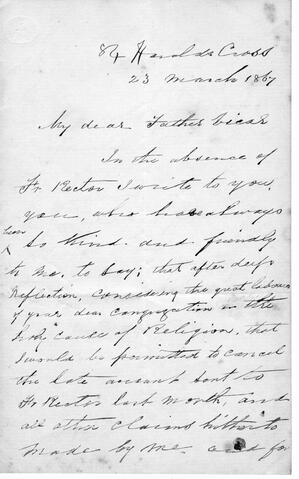 84 Harolds Cross
23 March 1867
My dear Father Vicar
In the absence of
Fr Rector I write to you,
you, who has always
been
so kind and friendly
to me, to say; that after deep
Reflection, considering the great labours
of your dear Congregation in the
holy cause of Religion, that
I would be permitted to cancel
the late account sent to
Fr Rector last month and
all other claims hitherto
made by me and for